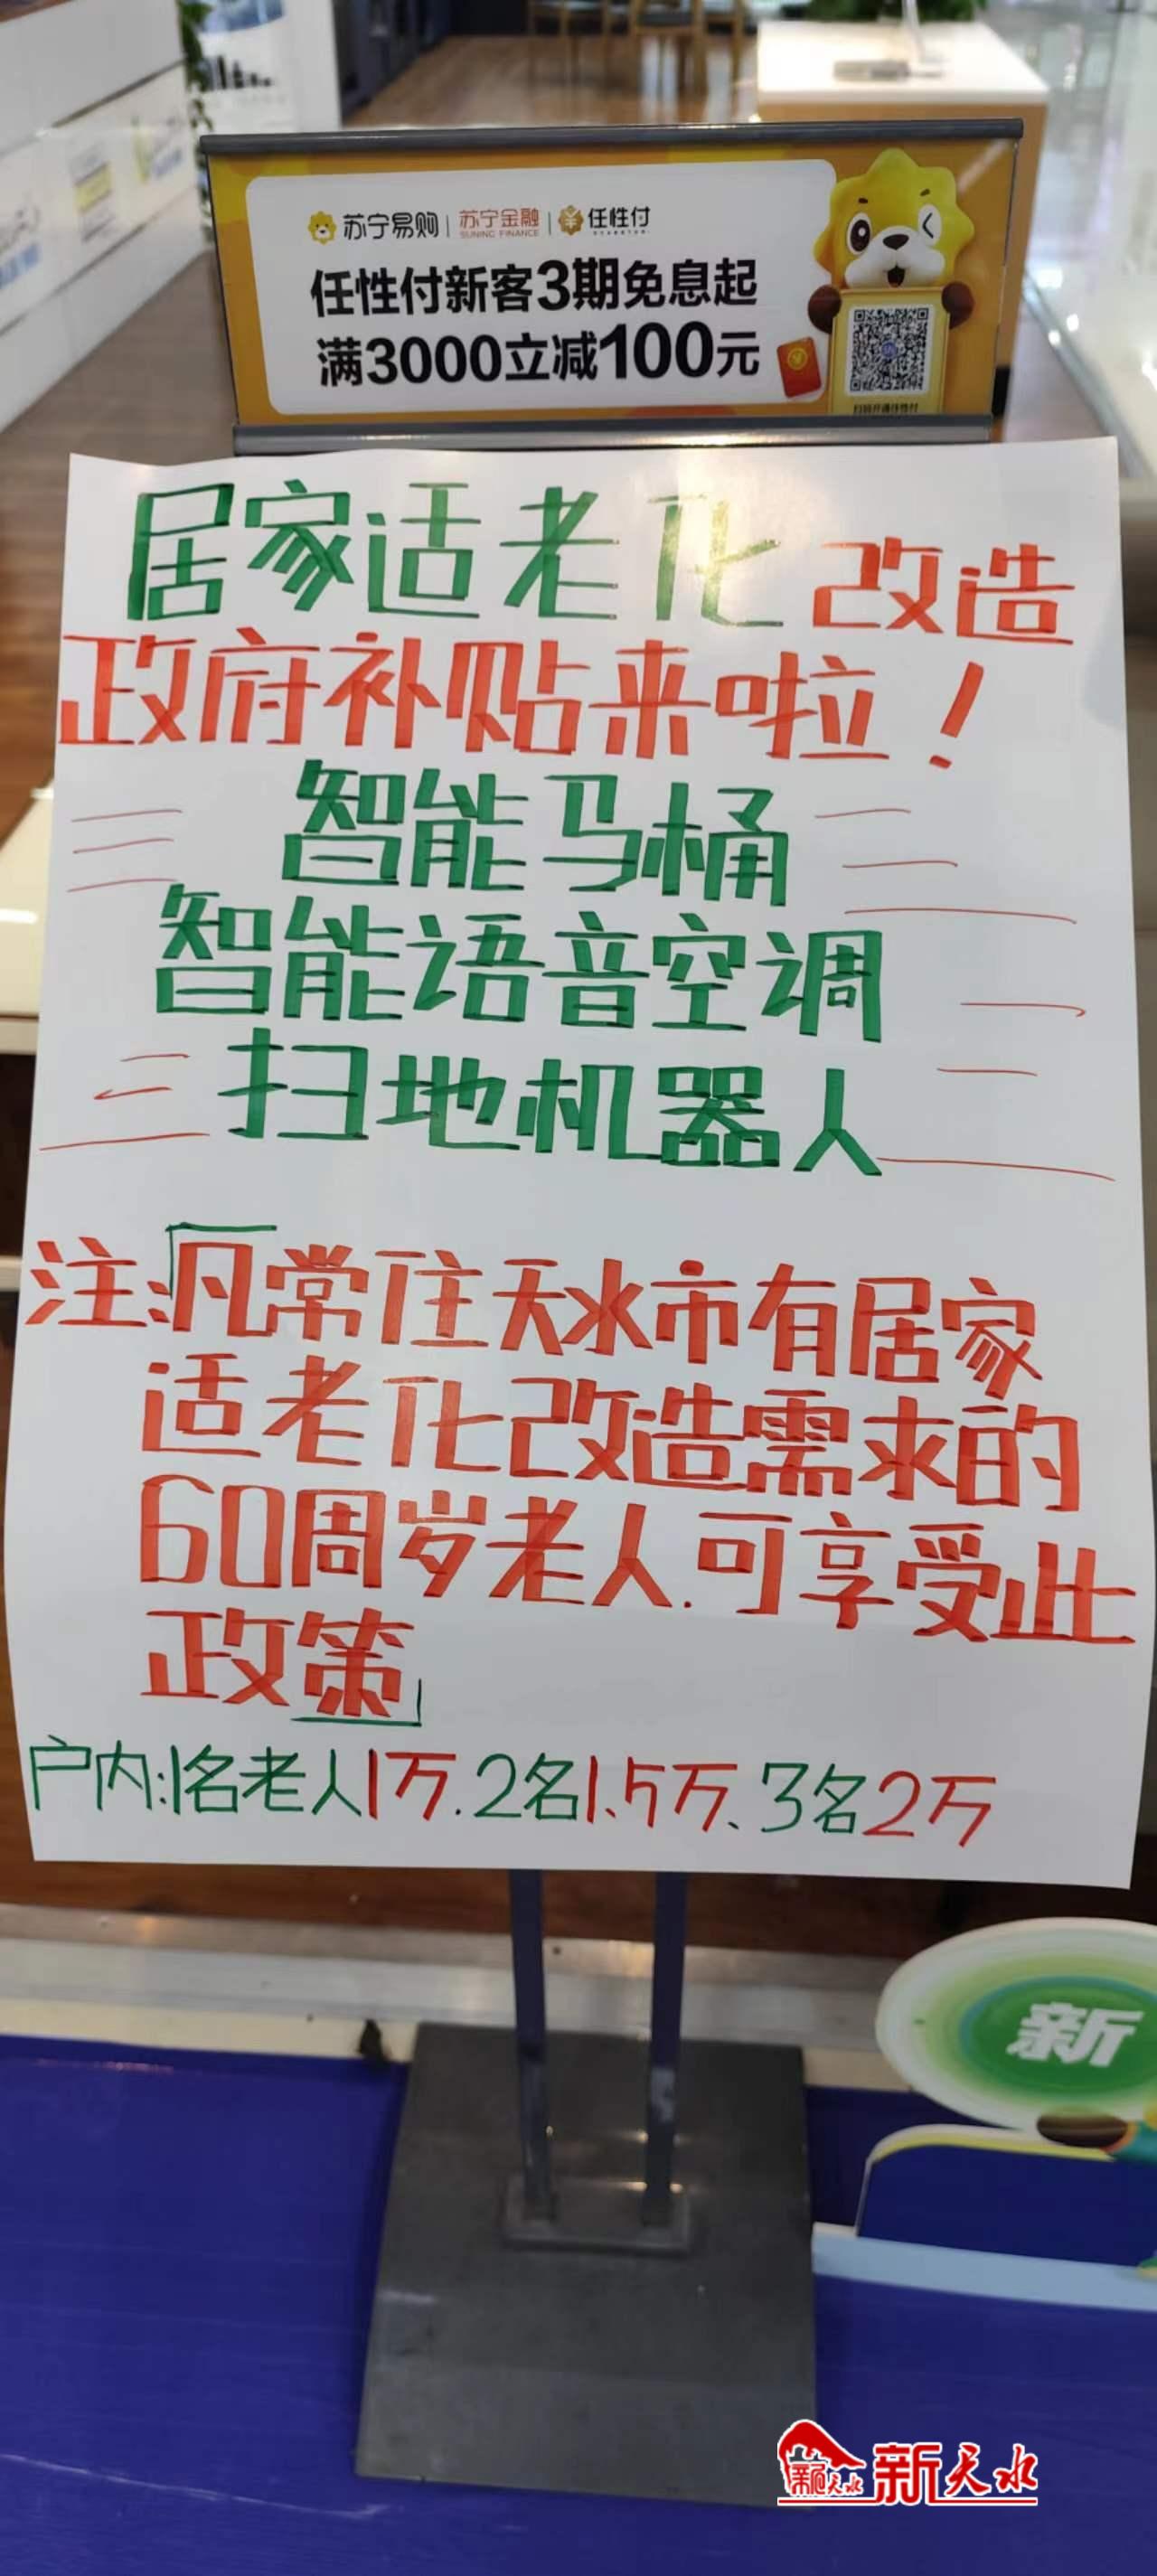 苏宁易购 | 苏宁金融 SUNING FINANCE | 任性付
任性付新客3期免息起
满3000立减100元
扫码开通任性付
居家适老化改造
政府补贴来啦！
智能马桶
智能语音空调
扫地机器人
注:「凡常住天水市有居家
适老化改造需求的
60周岁老人.可享受此
政策」
户内:1名老人1万.2名1.5万、3名2万
新
新天水